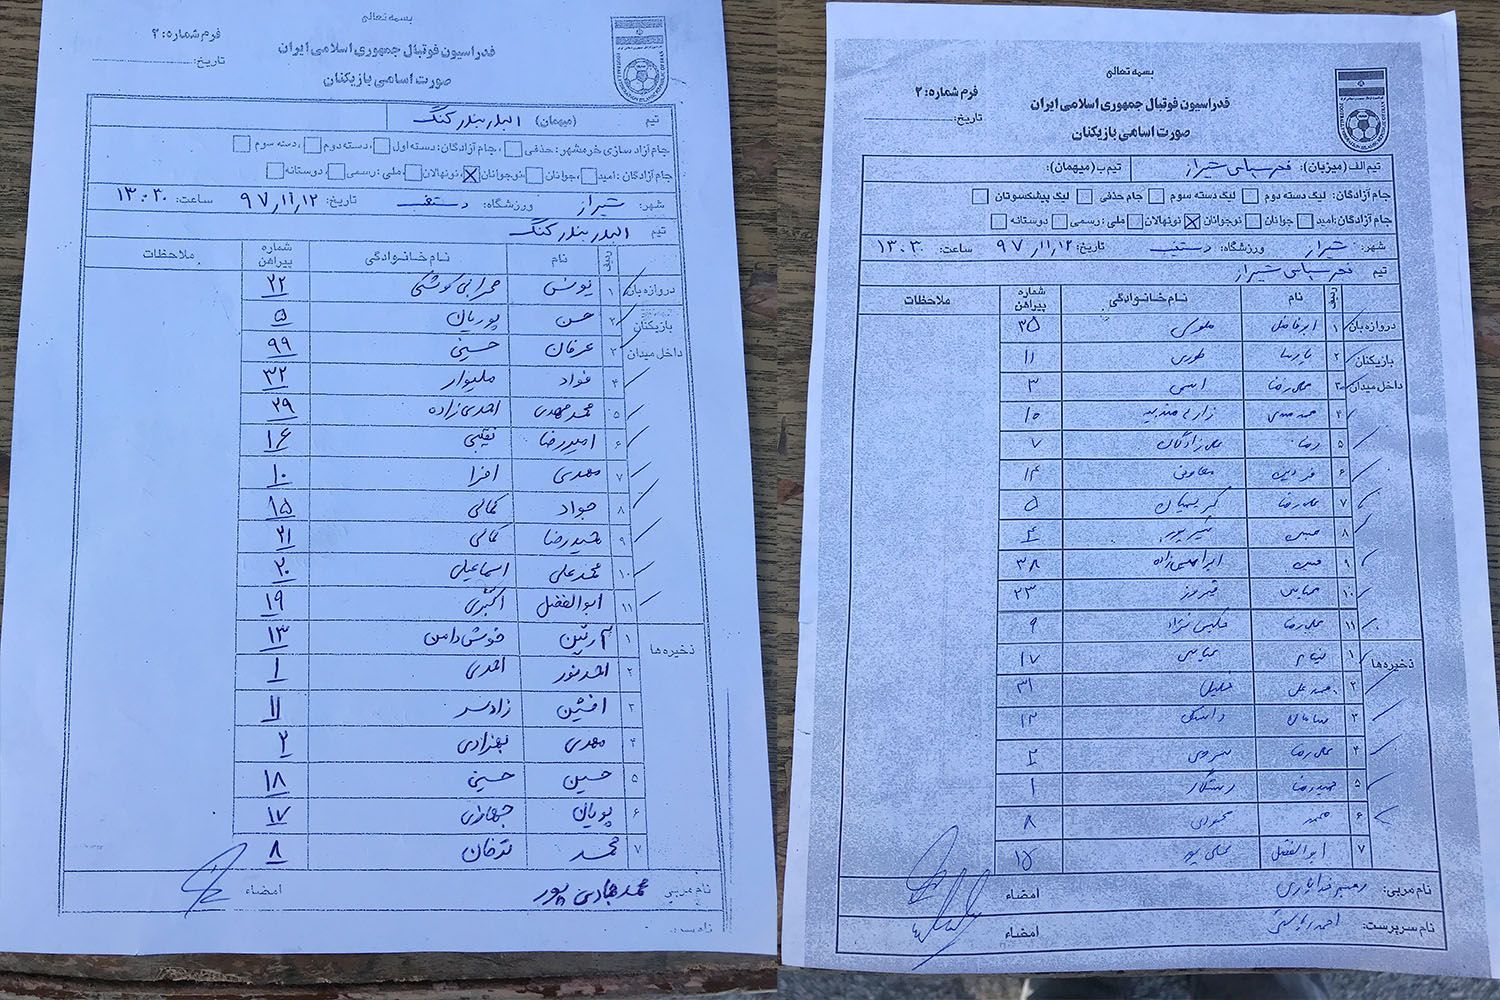 بسمه تعالی
فدراسیون فوتبال جمهوری اسلامی ایران
صورت اسامی بازیکنان
فرم شماره: ۲
تاریخ:
تیم (میهمان) البدر بندر کنگ
جام آزاد سازی خرمشهر: حذفی ، جام آزادگان: دسته اول ، دسته دوم ، دسته سوم
جام آزادگان: امید ، جوانان نوجوانان نونهالان ، ملی: رسمی ، دوستانه
شهر: شیراز ورزشگاه: دستغیب تاریخ: ۹۷/۱۱/۱۲ ساعت: ۱۳:۳۰
تیم البدر بندر کنگ
ردیف نام نام خانوادگی شماره پیراهن ملاحظات
دروازه بان ۱ یونس ۲۲
بازیکنان ۲ حسن پوریان ۵
داخل میدان ۳ عرفان حسینی ۹۹
۴ فواد ملیوار ۳۲
۵ محمدمهدی احمدی زاده ۲۹
۶ امیررضا نقیبی ۱۶
۷ مهدی افزا ۱۰
۸ جواد کمالی ۱۵
۹ کمالی ۲۱
۱۰ محمدعلی اسماعیلی ۲۰
۱۱ ابوالفضل اکبری ۱۹
ذخیره ها ۱ آرتین خوش دامن ۱۳
۲ احمدنور احمدی ۱
۳ افشین زادسر ۱۱
۴ مهدی بهزادی ۲
۵ حسین حسینی ۱۸
۶ پویان ۱۷
۷ محمد ۸
نام مربی محمد هادی پور امضاء
بسمه تعالی
فدراسیون فوتبال جمهوری اسلامی ایران
صورت اسامی بازیکنان
فرم شماره: ۲
تاریخ:
تیم الف (میزبان): فجر سپاسی شیراز تیم ب (میهمان):
جام آزادگان: لیگ دسته دوم لیگ دسته سوم جام حذفی لیگ پیشکسوتان
جام آزادگان: امید جوانان نوجوانان نونهالان ملی: رسمی دوستانه
شهر: شیراز ورزشگاه: دستغیب تاریخ: ۹۷/۱۱/۱۲ ساعت: ۱۳:۳۰
تیم فجر سپاسی شیراز
ردیف نام نام خانوادگی شماره پیراهن ملاحظات
دروازه بان ۱ ابوفاضل ۳۵
بازیکنان ۲ پارسا ۱۱
داخل میدان ۳ علیرضا ۳
۴ ۱۰
۵ رضا ۷
۶ فردین معاونی ۱۴
۷ علیرضا کریمیان ۵
۸ ۴
۹ ۳۸
۱۰ عباس فیروز ۲۳
۱۱ علیرضا ۹
ذخیره ها ۱ عباسی ۱۷
۲ محمدعلی خلیلی ۳۱
۳ سامان ۱۲
۴ علیرضا ۲
۵ حمیدرضا رستگار ۱
۶ محمد محمودی ۸
۷ ابوالفضل ۱۵
نام مربی: امضاء
نام سرپرست: امضاء